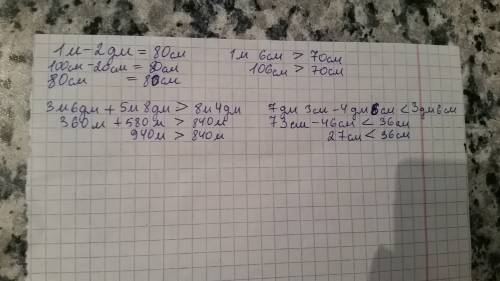 1м - 2дм = 80см
100см - 20см = 80см
80см = 80см
1м 6см > 70см
106см > 70см
3м6дм + 5м8дм > 8м4дм
360м + 580м > 840м
940м > 840м
7дм 3см - 4дм 6см < 3дм6см
73см - 46см < 36см
27см < 36см